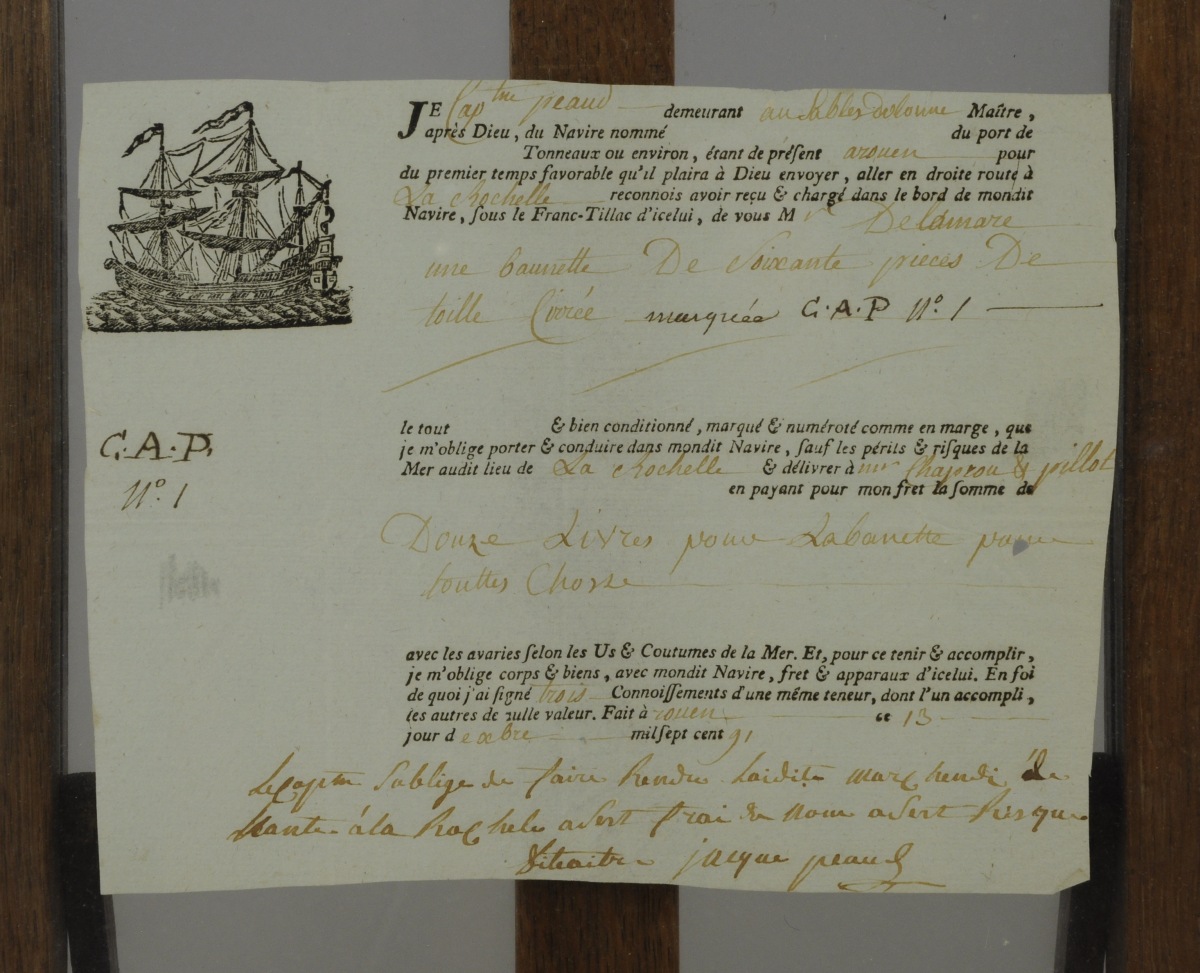 JE Cap.tne peaud demeurant au Sables dolonne Maître,
après Dieu, du Navire nommé du port de
Tonneaux ou environ, étant de préſent arouen pour
du premier temps favorable qu'il plaira à Dieu envoyer, aller en droite route à
La Rochelle reconnois avoir reçu & chargé dans le bord de mondit
Navire, ſous le Franc-Tillac d'icelui, de vous M r Delamare
une baunette De Soixante pieces De
toille Cirée marquée C.A.P N.º 1
C.A.P.
N.º 1
le tout & bien conditionné, marqué & numéroté comme en marge, que
je m'oblige porter & conduire dans mondit Navire, ſauf les périls & riſques de la
Mer audit lieu de La Rochelle & délivrer à mrs Chaprou & pillot
en payant pour mon fret la ſomme de
Douze Livres pour Labanette pour
touttes Chosze
avec les avaries ſelon les Us & Coutumes de la Mer. Et, pour ce tenir & accomplir,
je m'oblige corps & biens, avec mondit Navire, fret & apparaux d'icelui. En foi
de quoi j'ai ſigné trois Connoiſſements d'une même teneur, dont l'un accompli,
les autres de nulle valeur. Fait à rouen ce 13
jour d e xbre mil ſept cent 91
Le Captne Soblige de faire Rendre Laidite marchendi de
Nante á la Rochele a sert frai de nour a sert Risque
jacque peaud